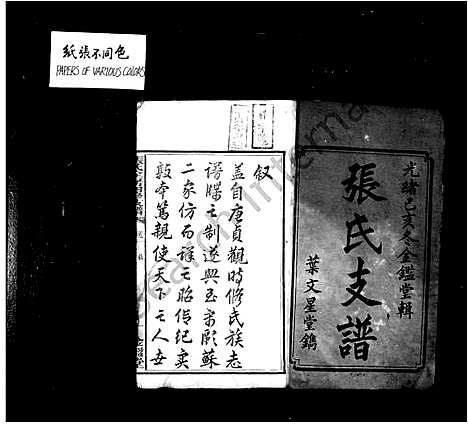 紙張不同色
PAPERS OF VARIOUS COLORS
光緒己亥春金鑑堂輯
張氏支譜
葉文星堂鐫
叙
蓋自唐貞觀時修氏族志
譜牒之制遂興至宋歐蘇
二家仿而詳之昭傳紀実
敦本篤親使天下之人女